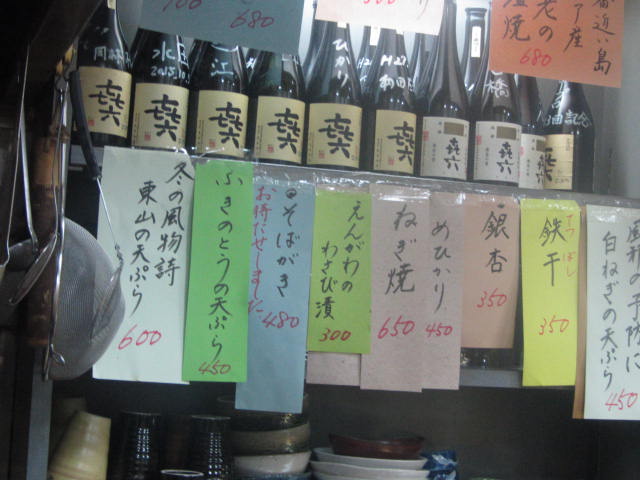 100
680
300
番近い島
ア産
老の
塩焼
680
水
2015.10
江
ひかり
H23
橋
酒記念
㐂六
㐂六
㐂六
㐂六
㐂六
㐂六
㐂六
㐂六
冬の風物詩
東山の天ぷら
600
ふきのとうの天ぷら
450
お待たせしました
そばがき
480
えんがわの
わさび漬
300
ねぎ焼
650
めひかり
450
銀杏
350
てつぼし
鉄干
350
風邪の予防に
白ねぎの天ぷら
450